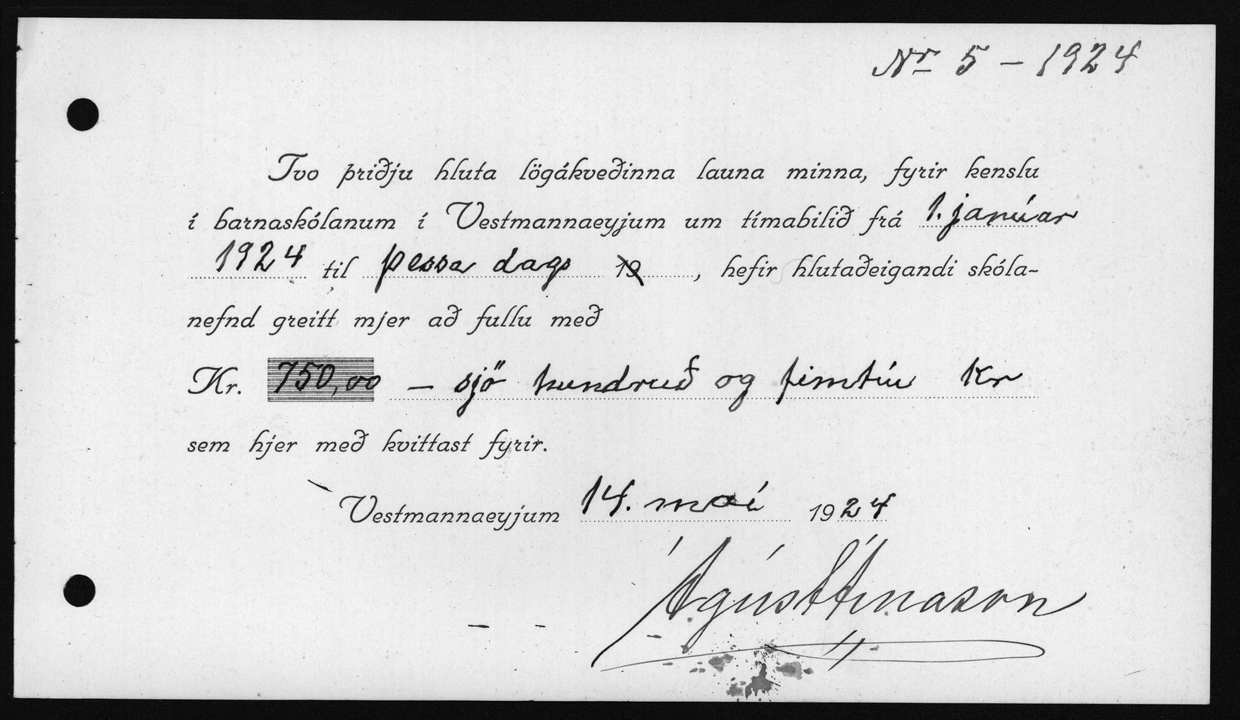 Nr 5 - 1924
Tvo þriðju hluta lögákveðinna launa minna, fyrir kenslu
í barnaskólanum í Vestmannaeyjum um tímabilið frá 1. janúar
1924 til þessa dags 19 , hefir hlutaðeigandi skóla-
nefnd greitt mjer að fullu með
Kr. 750,00 — sjö hundruð og fimtíu kr
sem hjer með kvittast fyrir.
Vestmannaeyjum 14. maí 1924
Ágúst Árnason